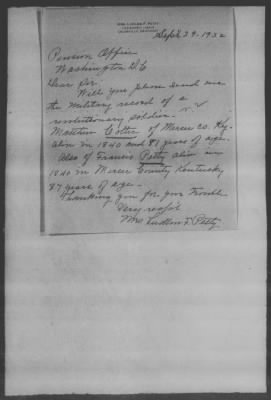 MRS. LUDLOW F. PETTY
Sept 29 - 1932
Pension Office
Washington D.C.
Dear Sir.
Will you please send me
the military record of a
revolutionary soldier.
Matthew Colter of Mercer Co. Ky.
alive in 1840 and 81 years of age.
Also of Francis Petty alive in
1840 in Mercer County Kentucky
87 years of age.
Thanking you for your trouble
Very resp't
Mrs Ludlow F. Petty